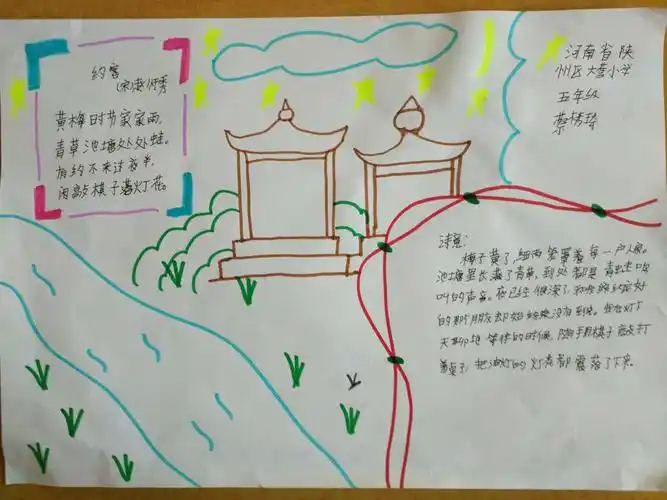 约客
(宋)赵师秀
黄梅时节家家雨，
青草池塘处处蛙。
有约不来过夜半，
闲敲棋子落灯花。
河南省陕
州区大营小学
五年级
蔡
诗意：
梅子黄了，细雨笼罩着每一户人家。
池塘里长满了青草，到处都是青蛙呱呱
叫的声音。夜已经很深了，和
的那朋友却始终没有到来。
等待的时候，随手用棋子敲打
着桌子，把油灯的灯花都震落了下来。